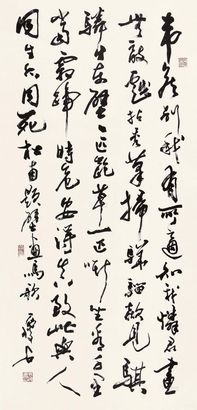 韋侯別我有所適知我憐君畫
無敵戲拈禿筆掃驊騮欻見騏
驎出東壁一匹齕草一匹嘶坐看千里
當霜蹄時危安得真致此與人
同生亦同死杜甫題壁畫馬歌